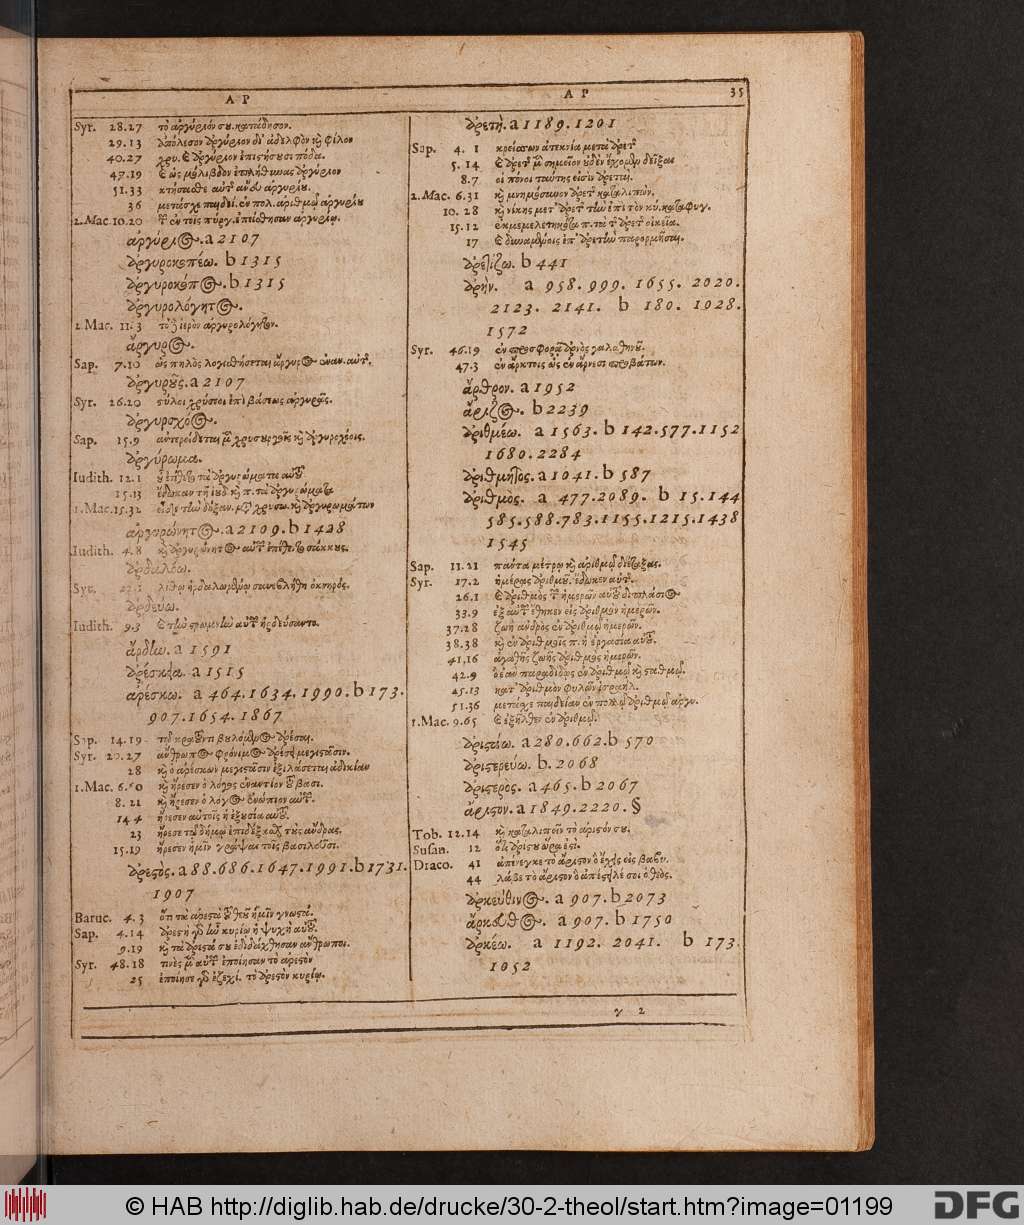 ΑΡ
ΑΡ 35
Syr. 28.27 τὸ ἀργύριόν σου κατάδησον.
29.13 ἀπόλεσον ἀργύριον δι' ἀδελφὸν καὶ φίλον
40.27 χρυ. καὶ ἀργύριον ἐπιστήσουσι πόδα.
47.19 καὶ ὡς μόλιβδον ἐπλήθυνας ἀργύριον
51.33 κτήσασθε αὐτ ἄνευ ἀργυρίου.
36 μετάσχε παιδεί. ἐν πολ. ἀριθμῷ ἀργυρίου
2.Mac. 10.20 ἐν τοῖς πύργ. ἐπείσθησαν ἀργυρίῳ.
ἀργύριος. a 2107
ἀργυροκοπέω. b 1315
ἀργυροκόπος. b 1315
ἀργυρολόγητος.
2.Mac. 11.3 τὸ ἱερὸν ἀργυρολόγητον.
ἄργυρος.
Sap. 7.10 ὡς πηλὸς λογισθήσεται ἄργυρος ἐναν. αὐτ.
ἀργυροῦς. a 2107
Syr. 26.20 στύλοι χρύσεοι ἐπὶ βάσεως ἀργυρᾶς.
ἀργυροχόος.
Sap. 15.9 ἀντερείδεται χρυσουργοῖς καὶ ἀργυροχόοις.
ἀργύρωμα.
Iudith. 12.1 τὰ ἀργυρώματα αὐτοῦ
15.13 ἔδωκαν τῇ ἰουδ καὶ π. τὰ ἀργυρώματα
1.Mac. 15.32 εἶδε τὴν δόξαν. μετὰ χρυσω. καὶ ἀργυρωμάτων
ἀργυρώνητος. a 2109. b 1428
Iudith. 4.8 καὶ ἀργυρώνητος αὐτῶν ἐπέθεντο σάκκους.
ἀρδαλόω.
Syr. 22.1 λίθῳ ἠρδαλωμένῳ συνεβλήθη ὀκνηρός.
ἀρδεύω.
Iudith. 9.3
ἄρδην. a 1591
ἀρέσκεια. a 1515
ἀρέσκω. a 464. 1634. 1990. b 173.
907. 1654. 1867
Sap. 14.19 τῷ κρατοῦντι βουλόμενος ἀρέσαι.
Syr. 20.27 ἄνθρωπος φρόνιμος ἀρέσει μεγιστᾶσιν.
28 καὶ ὁ ἀρέσκων μεγιστᾶσιν ἐξιλάσεται ἀδικίαν
1.Mac. 6.60 καὶ ἤρεσεν ὁ λόγος ἐναντίον τοῦ βασι.
8.21 καὶ ἤρεσεν ὁ λόγος ἐνώπιον αὐτῶν.
14.4 ἤρεσεν αὐτοῖς ἡ ἐξουσία αὐτοῦ.
23 ἤρεσε τῷ δήμῳ ἐπιδέξασθαι τοὺς ἄνδρας.
15.19 ἤρεσεν ἡμῖν γράψαι τοῖς βασιλεῦσι.
ἀρεστός. a 88. 686. 1647. 1991. b 1731.
1907
Baruc. 4.3 ὅτι τὰ ἀρεστὰ τοῦ θεοῦ ἡμῖν γνωστά.
Sap. 4.14 ἀρεστὴ γὰρ ἦν κυρίῳ ἡ ψυχὴ αὐτοῦ.
9.19 καὶ τὰ ἀρεστά σου ἐδιδάχθησαν ἄνθρωποι.
Syr. 48.18 τινὲς μὲν αὐτῶν ἐποίησαν τὸ ἀρεστὸν
25 ἐποίησε γὰρ ἐζεχί. τὸ ἀρεστὸν κυρίῳ.
ἀρετή. a 1189. 1201
Sap. 4.1 κρείσσων ἀτεκνία μετὰ ἀρετῆς
5.14 καὶ ἀρετῆς μὲν σημεῖον οὐδὲν ἔχομεν δεῖξαι
8.7 οἱ πόνοι ταύτης εἰσὶν ἀρεταί.
2.Mac. 6.31 καὶ μνημόσυνον ἀρετῆς καταλιπών.
10.28 καὶ νίκης μετ' ἀρετῆς τὴν ἐπὶ τὸν κύ. καταφυγ.
15.12 ἐκμεμελετηκότα π. τὰ τῆς ἀρετῆς οἰκεῖα.
17 καὶ δυναμένοις ἐπ' ἀρετὴν παρορμῆσαι.
ἀρετίζω. b 441
ἀρήν. a 958. 999. 1655. 2020.
2123. 2141. b 180. 1028.
1572
Syr. 46.19 ἐν προσφορᾷ ἀρνὸς γαλαθηνοῦ.
47.3 ἐν ἄρκτοις ὡς ἐν ἄρνεσι προβάτων.
ἄρθρον. a 1952
b 2239
ἀριθμέω. a 1563. b 142. 577. 1152
1680. 2284
ἀριθμητός. a 1041. b 587
ἀριθμὸς. a 477. 2089. b 15. 144
585. 588. 783. 1155. 1215. 1438
1545
Sap. 11.21 πάντα μέτρῳ καὶ ἀριθμῷ διέταξας.
Syr. 17.2 ἡμέρας ἀριθμοῦ ἔδωκεν αὐτ.
26.1 καὶ ἀριθμὸς τῶν ἡμερῶν αὐτοῦ διπλάσιος
33.9 ἐξ αὐτῶν ἔθηκεν εἰς ἀριθμὸν ἡμερῶν.
37.28 ζωὴ ἀνδρὸς ἐν ἀριθμῷ ἡμερῶν.
38.38 καὶ ἐν ἀριθμοῖς π. ἡ ἐργασία αὐτοῦ.
41.16 ἀγαθῆς ζωῆς ἀριθμὸς ἡμερῶν.
42.9 ὃ ἐὰν παραδίδως ἐν ἀριθμῷ καὶ σταθμῷ.
45.13 κατ' ἀριθμὸν φυλῶν ἰσραήλ.
51.36 μετάσχε παιδείαν ἐν πολλῷ ἀριθμῷ ἀργυ.
1.Mac. 9.65 καὶ ἐξῆλθεν ἐν ἀριθμῷ.
a 280. 662. b 570
ἀριστερεύω. b. 2068
ἀριστερός. a 465. b 2067
ἄριστον. a 1849. 2220. §
Tob. 12.14 καὶ καταλιπεῖν τὸ ἄριστόν σου.
Susan. 12
Draco. 41 ἀπένεγκε τὸ ἄριστον ὃ ἔχεις εἰς βαβυ.
44 λάβε τὸ ἄριστον ὃ ἀπέστειλέ σοι ὁ θεός.
ἀρκεύθινος. a 907. b 2073
ἄρκευθος. a 907. b 1750
ἀρκέω. a 1192. 2041. b 173.
1052
γ 2
© HAB http://diglib.hab.de/drucke/30-2-theol/start.htm?image=01199
DFG